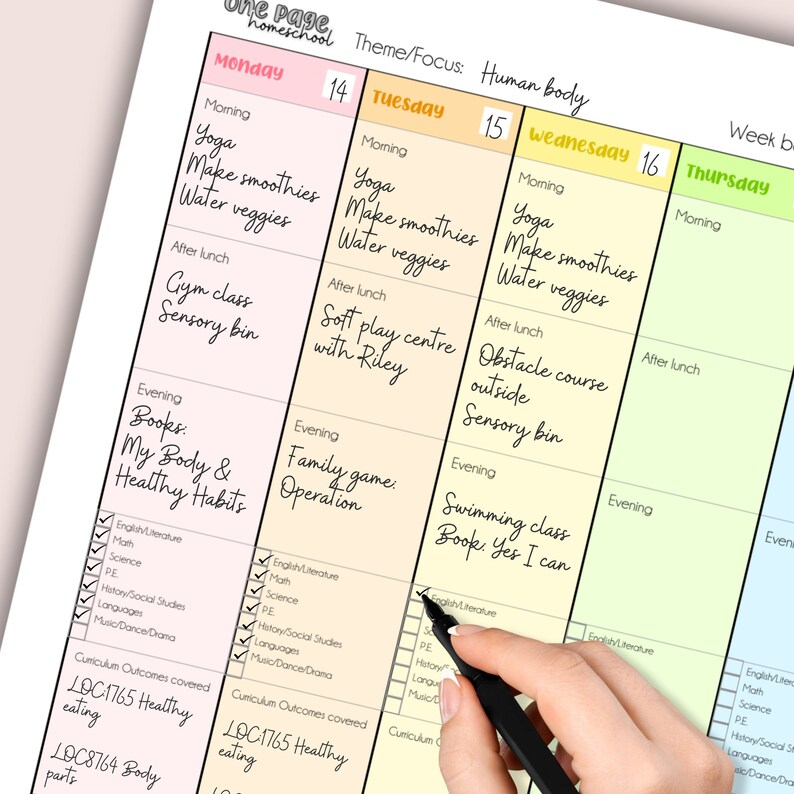 one page
homeschool
Theme/Focus: Human body
Week
Monday 14
Morning
Yoga
Make smoothies
Water veggies
After lunch
Gym class
Sensory bin
Evening
Books:
My Body &
Healthy Habits
English/Literature
Math
Science
P.E.
History/Social Studies
Languages
Music/Dance/Drama
Curriculum Outcomes covered
LOC:1765 Healthy
eating
LOC8764 Body
parts
Tuesday 15
Morning
Yoga
Make smoothies
Water veggies
After lunch
Soft play centre
with Riley
Evening
Family game:
Operation
English/Literature
Math
Science
P.E.
History/Social Studies
Languages
Music/Dance/Drama
Curriculum Outcomes covered
LOC:1765 Healthy
eating
Wednesday 16
Morning
Yoga
Make smoothies
Water veggies
After lunch
Obstacle course
outside
Sensory bin
Evening
Swimming class
Book: Yes I can
English/Literature
P.E.
Curriculum
Thursday
Morning
After lunch
Evening
English/Literature
English/Lite
Math
Science
P.E.
History/Social Stu
Languages
Music/Dance/D